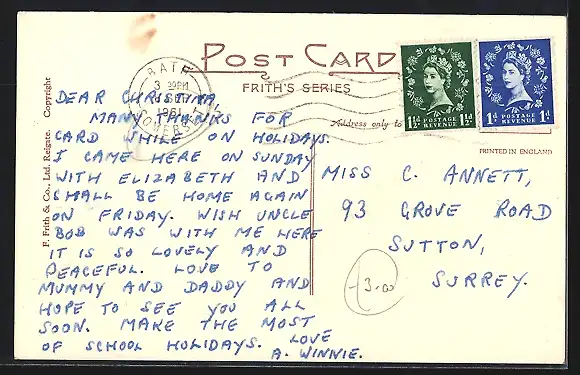 POST CARD
FRITH'S SERIES
Address only to
PRINTED IN ENGLAND
F. Frith & Co., Ltd. Reigate. Copyright
BATH
3 30PM
1961
SOMERSET
1½d POSTAGE REVENUE ½d
1d POSTAGE REVENUE 1d
DEAR CHRISTINA,
MANY THANKS FOR
CARD WHILE ON HOLIDAYS.
I CAME HERE ON SUNDAY
WITH ELIZABETH AND
SHALL BE HOME AGAIN
ON FRIDAY. WISH UNCLE
BOB WAS WITH ME HERE
IT IS SO LOVELY AND
PEACEFUL. LOVE TO
MUMMY AND DADDY AND
HOPE TO SEE YOU ALL
SOON. MAKE THE MOST
OF SCHOOL HOLIDAYS. LOVE
A. WINNIE.
MISS C. ANNETT,
93 GROVE ROAD
SUTTON,
SURREY.
-3.00